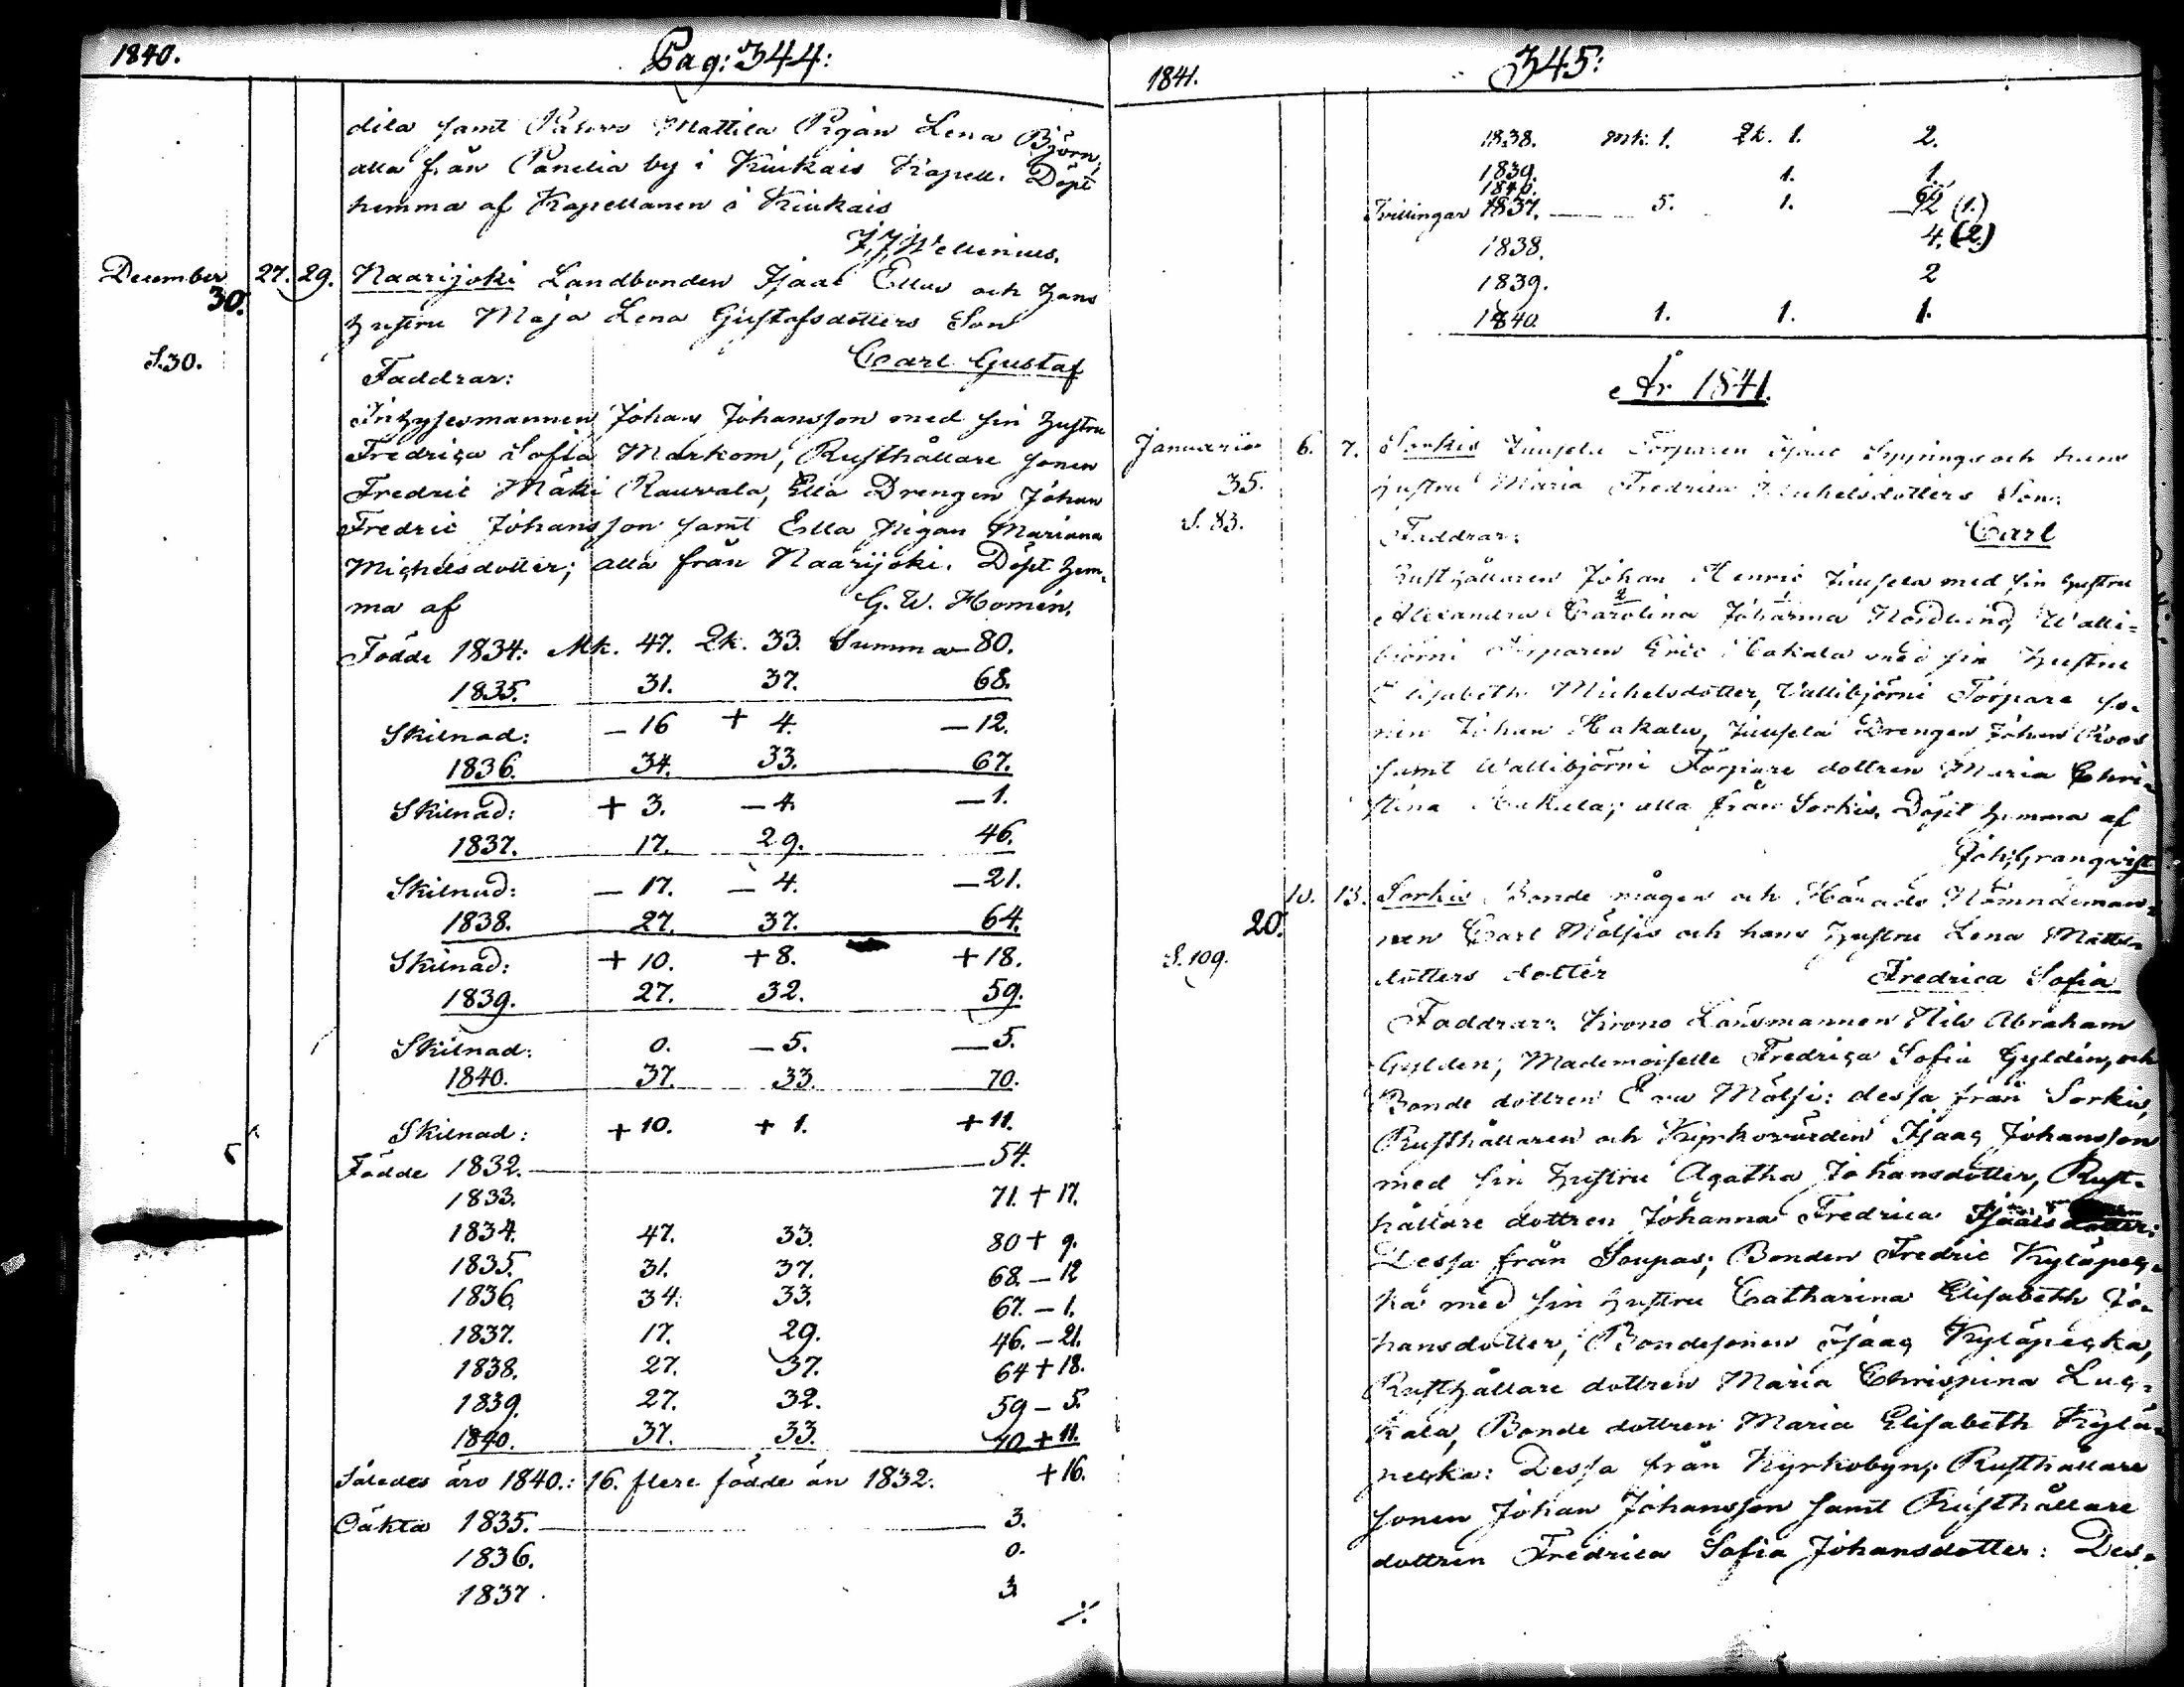 1840.
Pag: 344:
dila samt Mattila Pigan Lena Björn,
alla från Panelia by i Kiukais Kapell. Döpt
hemma af Kapellanen i Kiukais
December 27. 29. Naarijoki Landbonden Isaac Ellas och hans
30.
hustru Maja Lena Gustafsdotters Son
S.30.
Carl Gustaf
Faddrar:
Inhysesmannen Johan Johansson med sin hustru
Fredrica Sofia Markom, Rusthållare sonen
Fredric Mäki Rauvala, Ella Drengen Johan
Fredric Johansson samt Ella Pigan Mariana
Michelsdotter; alla från Naarijoki. Döpt hem-
ma af G. W. Homén.
Födde 1834: Mk. 47. Qk. 33. Summa 80.
1835. 31. 37. 68.
Skilnad: – 16 + 4. – 12.
1836. 34. 33. 67.
Skilnad: + 3. – 4. – 1.
1837. 17. 29. 46.
Skilnad: – 17. – 4. – 21.
1838. 27. 37. 64.
Skilnad: + 10. + 8. + 18.
1839. 27. 32. 59.
Skilnad: 0. – 5. – 5.
1840. 37. 33. 70.
Skilnad: + 10. + 1. + 11.
Födde 1832. 54.
1833. 71. + 17.
1834. 47. 33. 80 + 9.
1835. 31. 37. 68. – 12
1836. 34. 33. 67. – 1.
1837. 17. 29. 46. – 21.
1838. 27. 37. 64 + 18.
1839. 27. 32. 59 – 5.
1840. 37. 33. 70 + 11.
Således äro 1840.: 16. flere födde än 1832. + 16.
Oäkta 1835. 3.
1836. 0.
1837. 3
1841.
345:
1838. Mk. 1. Qk. 1. 2.
1839. 1. 1.
1840.
Tvillingar 1837. 5. 1. (1.)
1838. 4. (2.)
1839. 2
1840. 1. 1. 1.
År 1841.
Januarii 6. 7. Sorkis Juusela Torparen Isaac och hans
35.
hustru Maria Fredrica Michelsdotters Son:
S. 83.
Faddrar: Carl
Rusthållaren Johan Henric Juusela med sin hustru
Alexandra Carolina Johanna Nordlund, Walli-
björni Torparen Eric Hakala med sin hustru
Elisabeth Michelsdotter, Vallibjörni Torpare so-
nen Johan Hakala, Juusela Drengen Johan Roos
samt Wallibjörni Torpare dottren Maria Chri-
stina Hakala; alla från Sorkis. Döpt hemma af
Joh: Granqvist
10. 13. Sorkis Bonde mågen och Härads Nämndeman-
20.
nen Carl Mälsi och hans hustru Lena Matts-
S. 109.
dotters dotter Fredrica Sofia
Faddrar: Krono Länsmannen Nils Abraham
Gyldén, Mademoiselle Fredrica Sofia Gyldén, och
Bonde dottren Eva Mälsi: dessa från Sorkis,
Rusthållaren och Kyrkovärden Isaac Johansson
med sin hustru Agatha Johansdotter, Rust-
hållare dottren Johanna Fredrica Isaacsdotter:
Dessa från Soupas; Bonden Fredric Kyläpec-
ka med sin hustru Catharina Elisabeth Jo-
hansdotter, Bondesonen Isaac Kyläpecka,
Rusthållare dottren Maria Chrispina Luc-
kala, Bonde dottren Maria Elisabeth Kylä-
pecka: Dessa från Kyrkobyn; Rusthållare
sonen Johan Johansson samt Rusthållare
dottren Fredrica Sofia Johansdotter: Des-